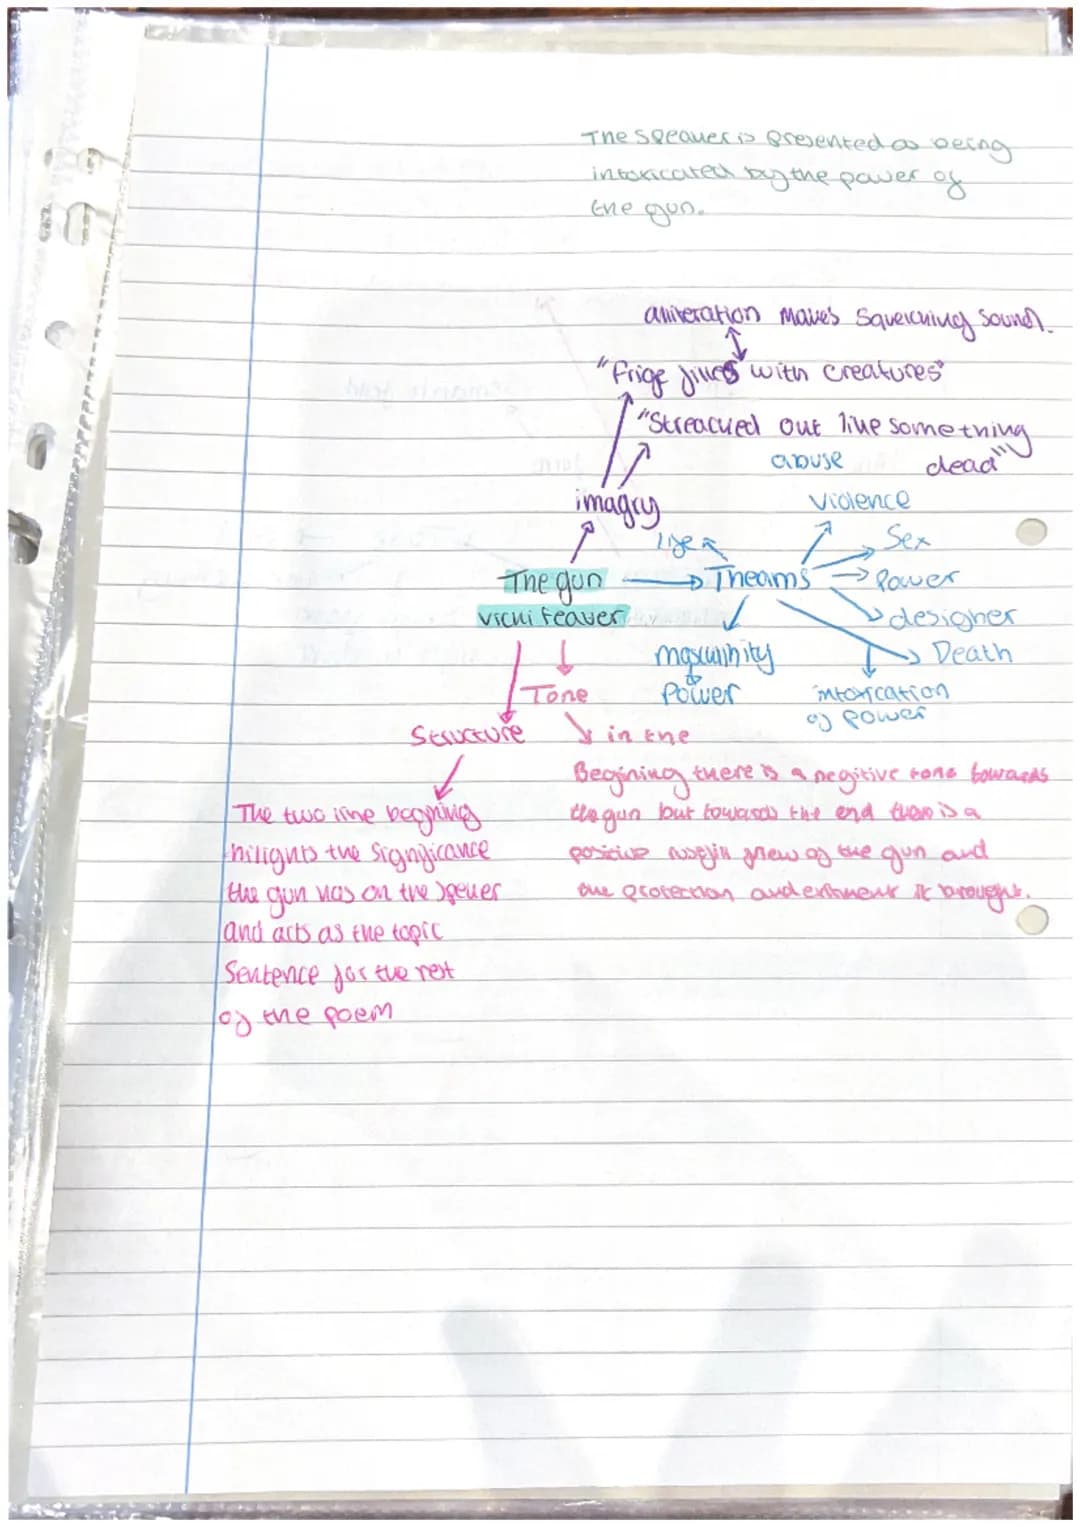 The Speaker is presented as being
intoxicated by the power of
the gun.
aliteration makes squelching sound.
"Frige filles with creatures"
"Streached out like something
dead"
abuse
imagry
violence
life
Sex
The gun
Theams
Power
vicki feaver
designher
masculinity
Death
Tone
Power
intoxication
of power
Structure
in the
Begining there is a negitive tone towards
the gun but towards the end there is a
positive view of the gun and
the protection and it brought.
The two line begining
hilights the significance
the gun has on the
and acts as the topic
Sentence for the rest
of the poem